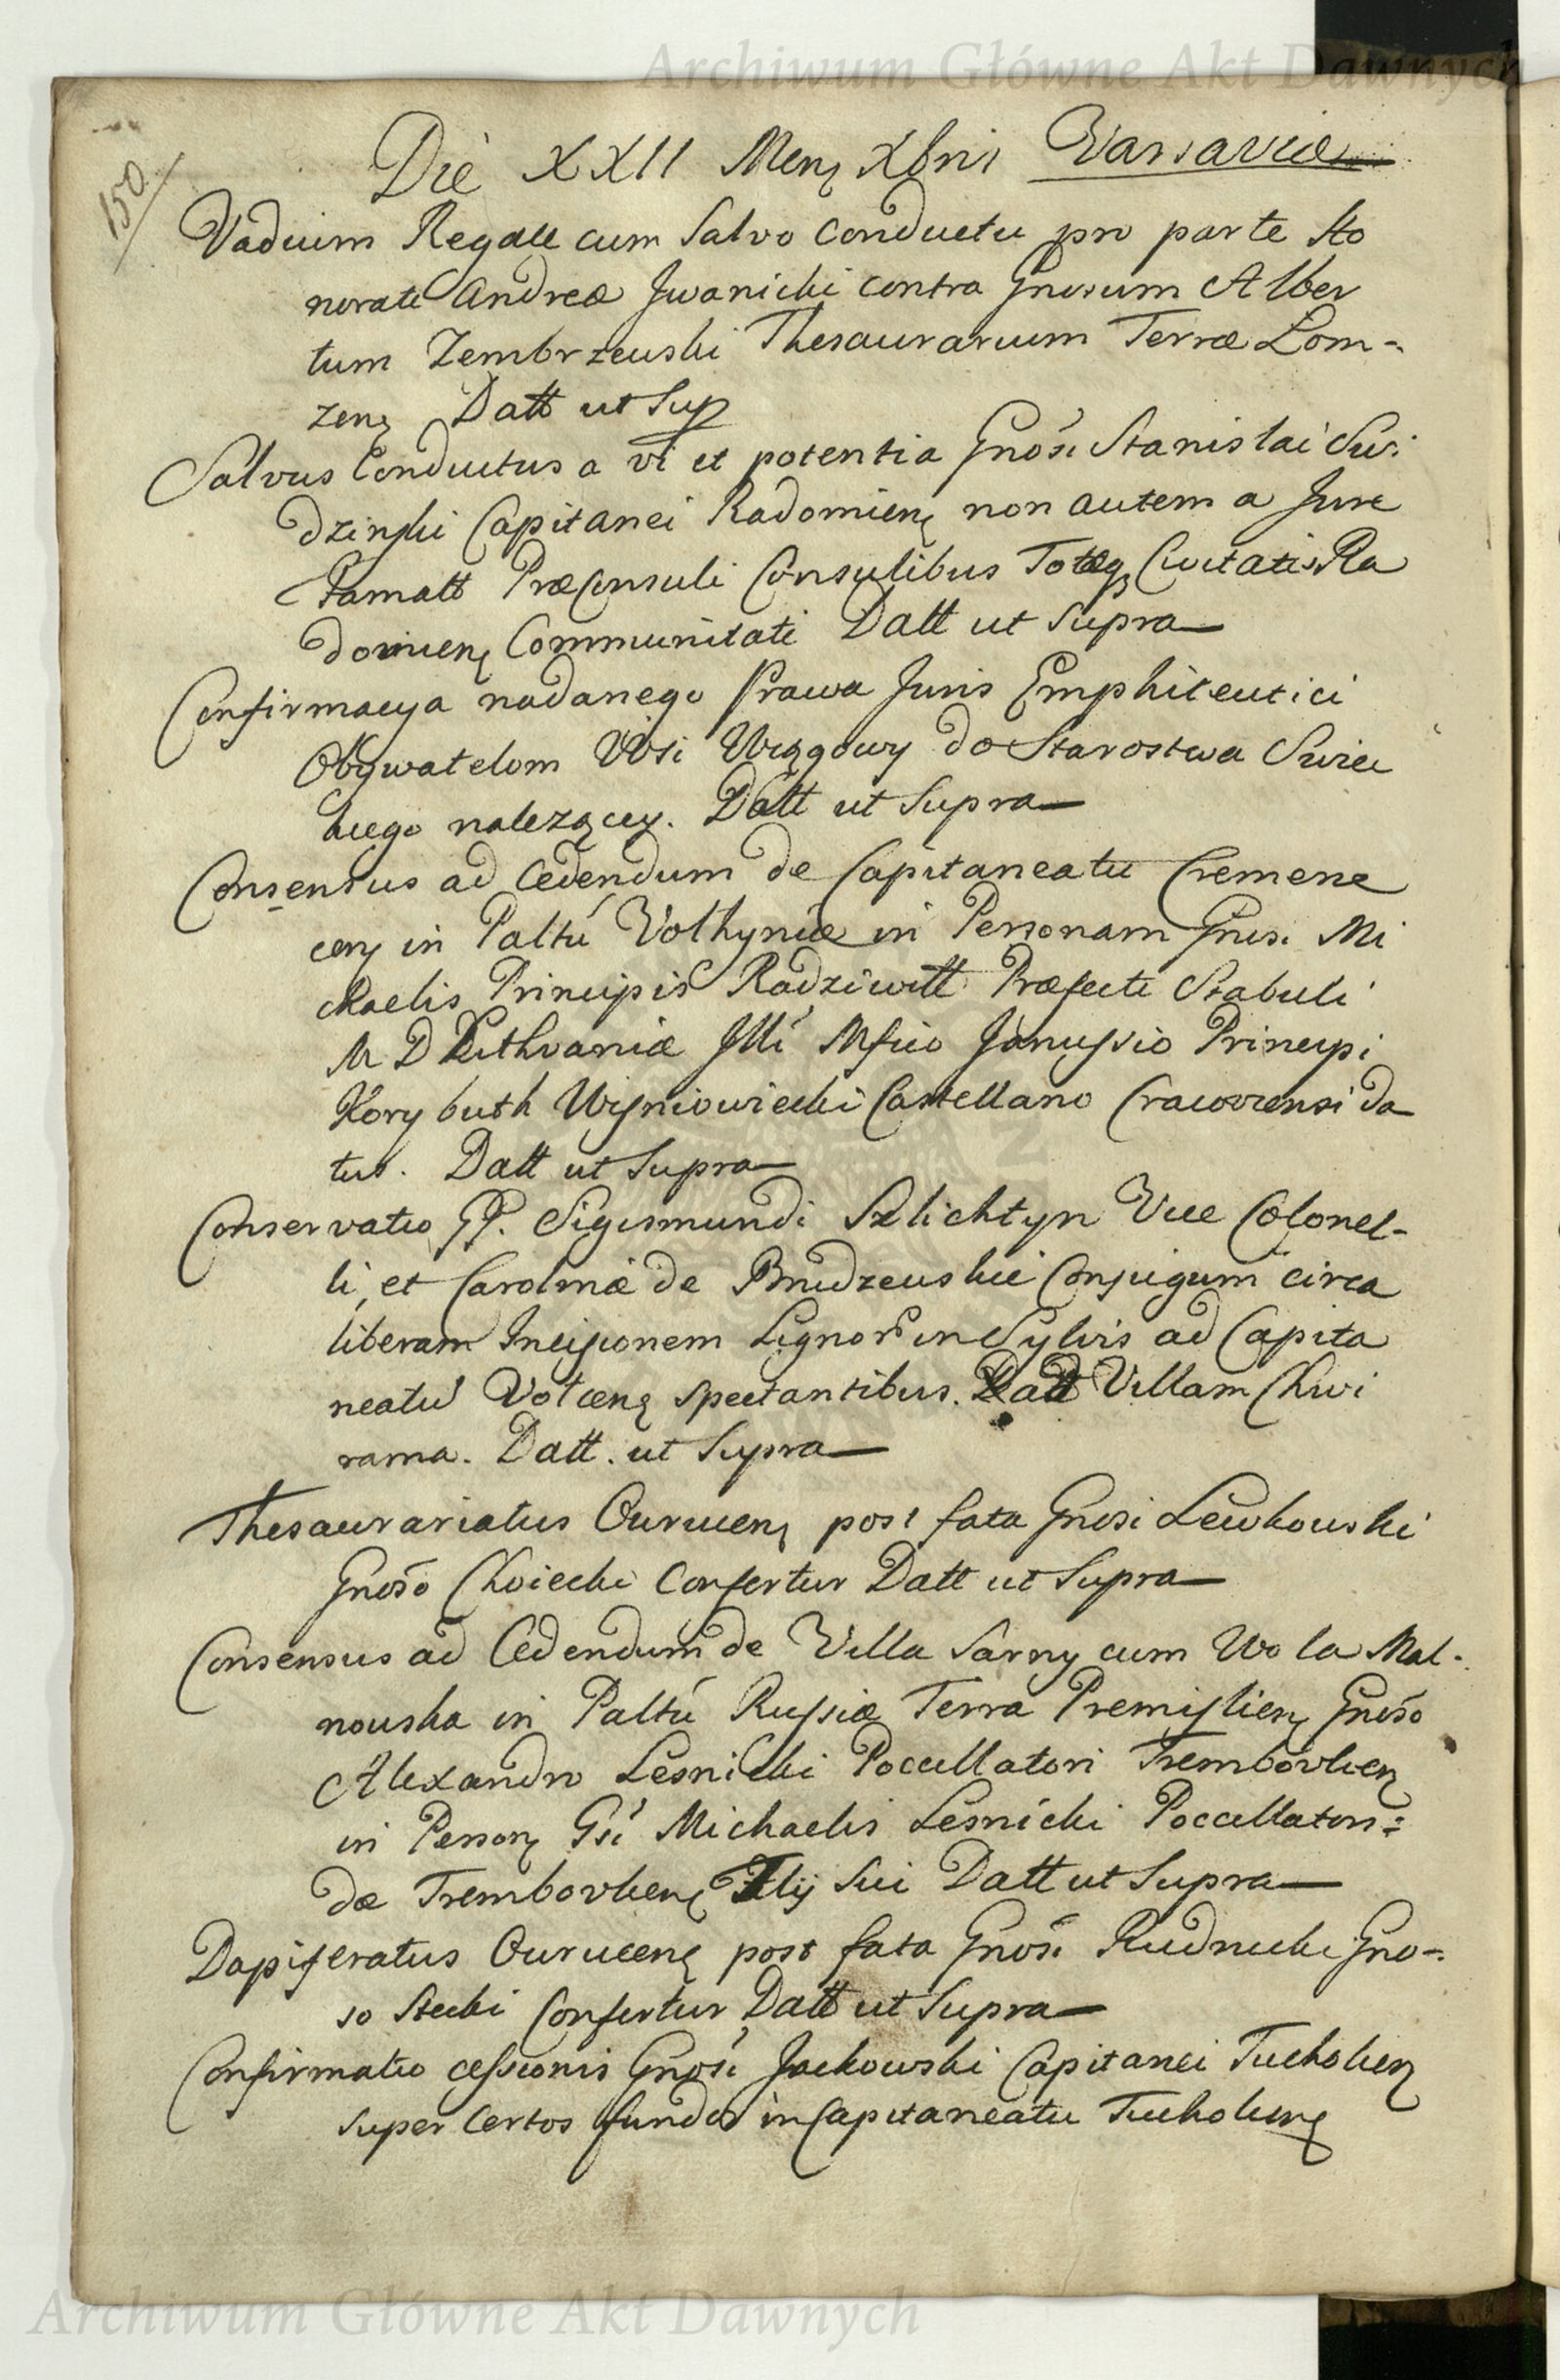 Archiwum Główne Akt Dawnych
150
Die XXII Mens Xbris Varsaviæ
Vadium Regale cum Salvo Conductu pro parte Ho
norati Andreæ Jwanicki contra Gnosum Alber
tum Zembrzeuski Thesaurarium Terræ Lom-
zens Datt ut Sup
Salvus Conductus a vi et potentia Gnosi Stanislai Swi
dzinski Capitanei Radomiens non autem a Jure
Famatt Præconsuli Consulibus Totæq Civitatis Ra
domiens Communitati Datt ut Supra
Confirmacya nadanego Prawa Juris Emphiteutici
Obywatelom Wsi Wiągowy do Starostwa Swiec
kiego nalezącey. Datt ut Supra
Consensus ad Cedendum de Capitaneatu Cremene
cens in Paltu Volhyniæ in Personam Gnosi Mi
chaelis Principis Radziwill Præfecti Stabuli
M D Lithvaniæ Jlli Mfico Janussio Principi
Korybuth Wisniowiecki Castellano Cracoviensi da
tus. Datt ut Supra
Conservatio GG. Sigismundi Szlichtyn Vice Colonel-
li, et Carolinæ de Brudzeuskie Conjugum circa
liberam Incisionem Lignor in Sylvis ad Capita
neatu Volcens spectantibus. Villam Chwi
rama. Datt. ut Supra
Thesaurariatus Ourucens post fata Gnosi Lewkouski
Gnoso Choiecki Confertur Datt ut Supra
Consensus ad Cedendum de Villa Sarny cum Wola Mal-
nouska in Paltu Russiæ Terra Premisliens Gnoso
Alexandro Lesnicki Poccillatori Trembovliens
in Person Gsi Michaelis Lesnicki Poccillatori:
dæ Trembovliens Flij Sui Datt ut Supra
Dapiferatus Ourucens post fata Gnosi Rudnicki Gno-
so Stecki Confertur Datt ut Supra
Confirmatio cessionis Gnosi Jackowski Capitanei Tucholien
super Certos fundos in Capitaneatu Tucholiens
Archiwum Główne Akt Dawnych